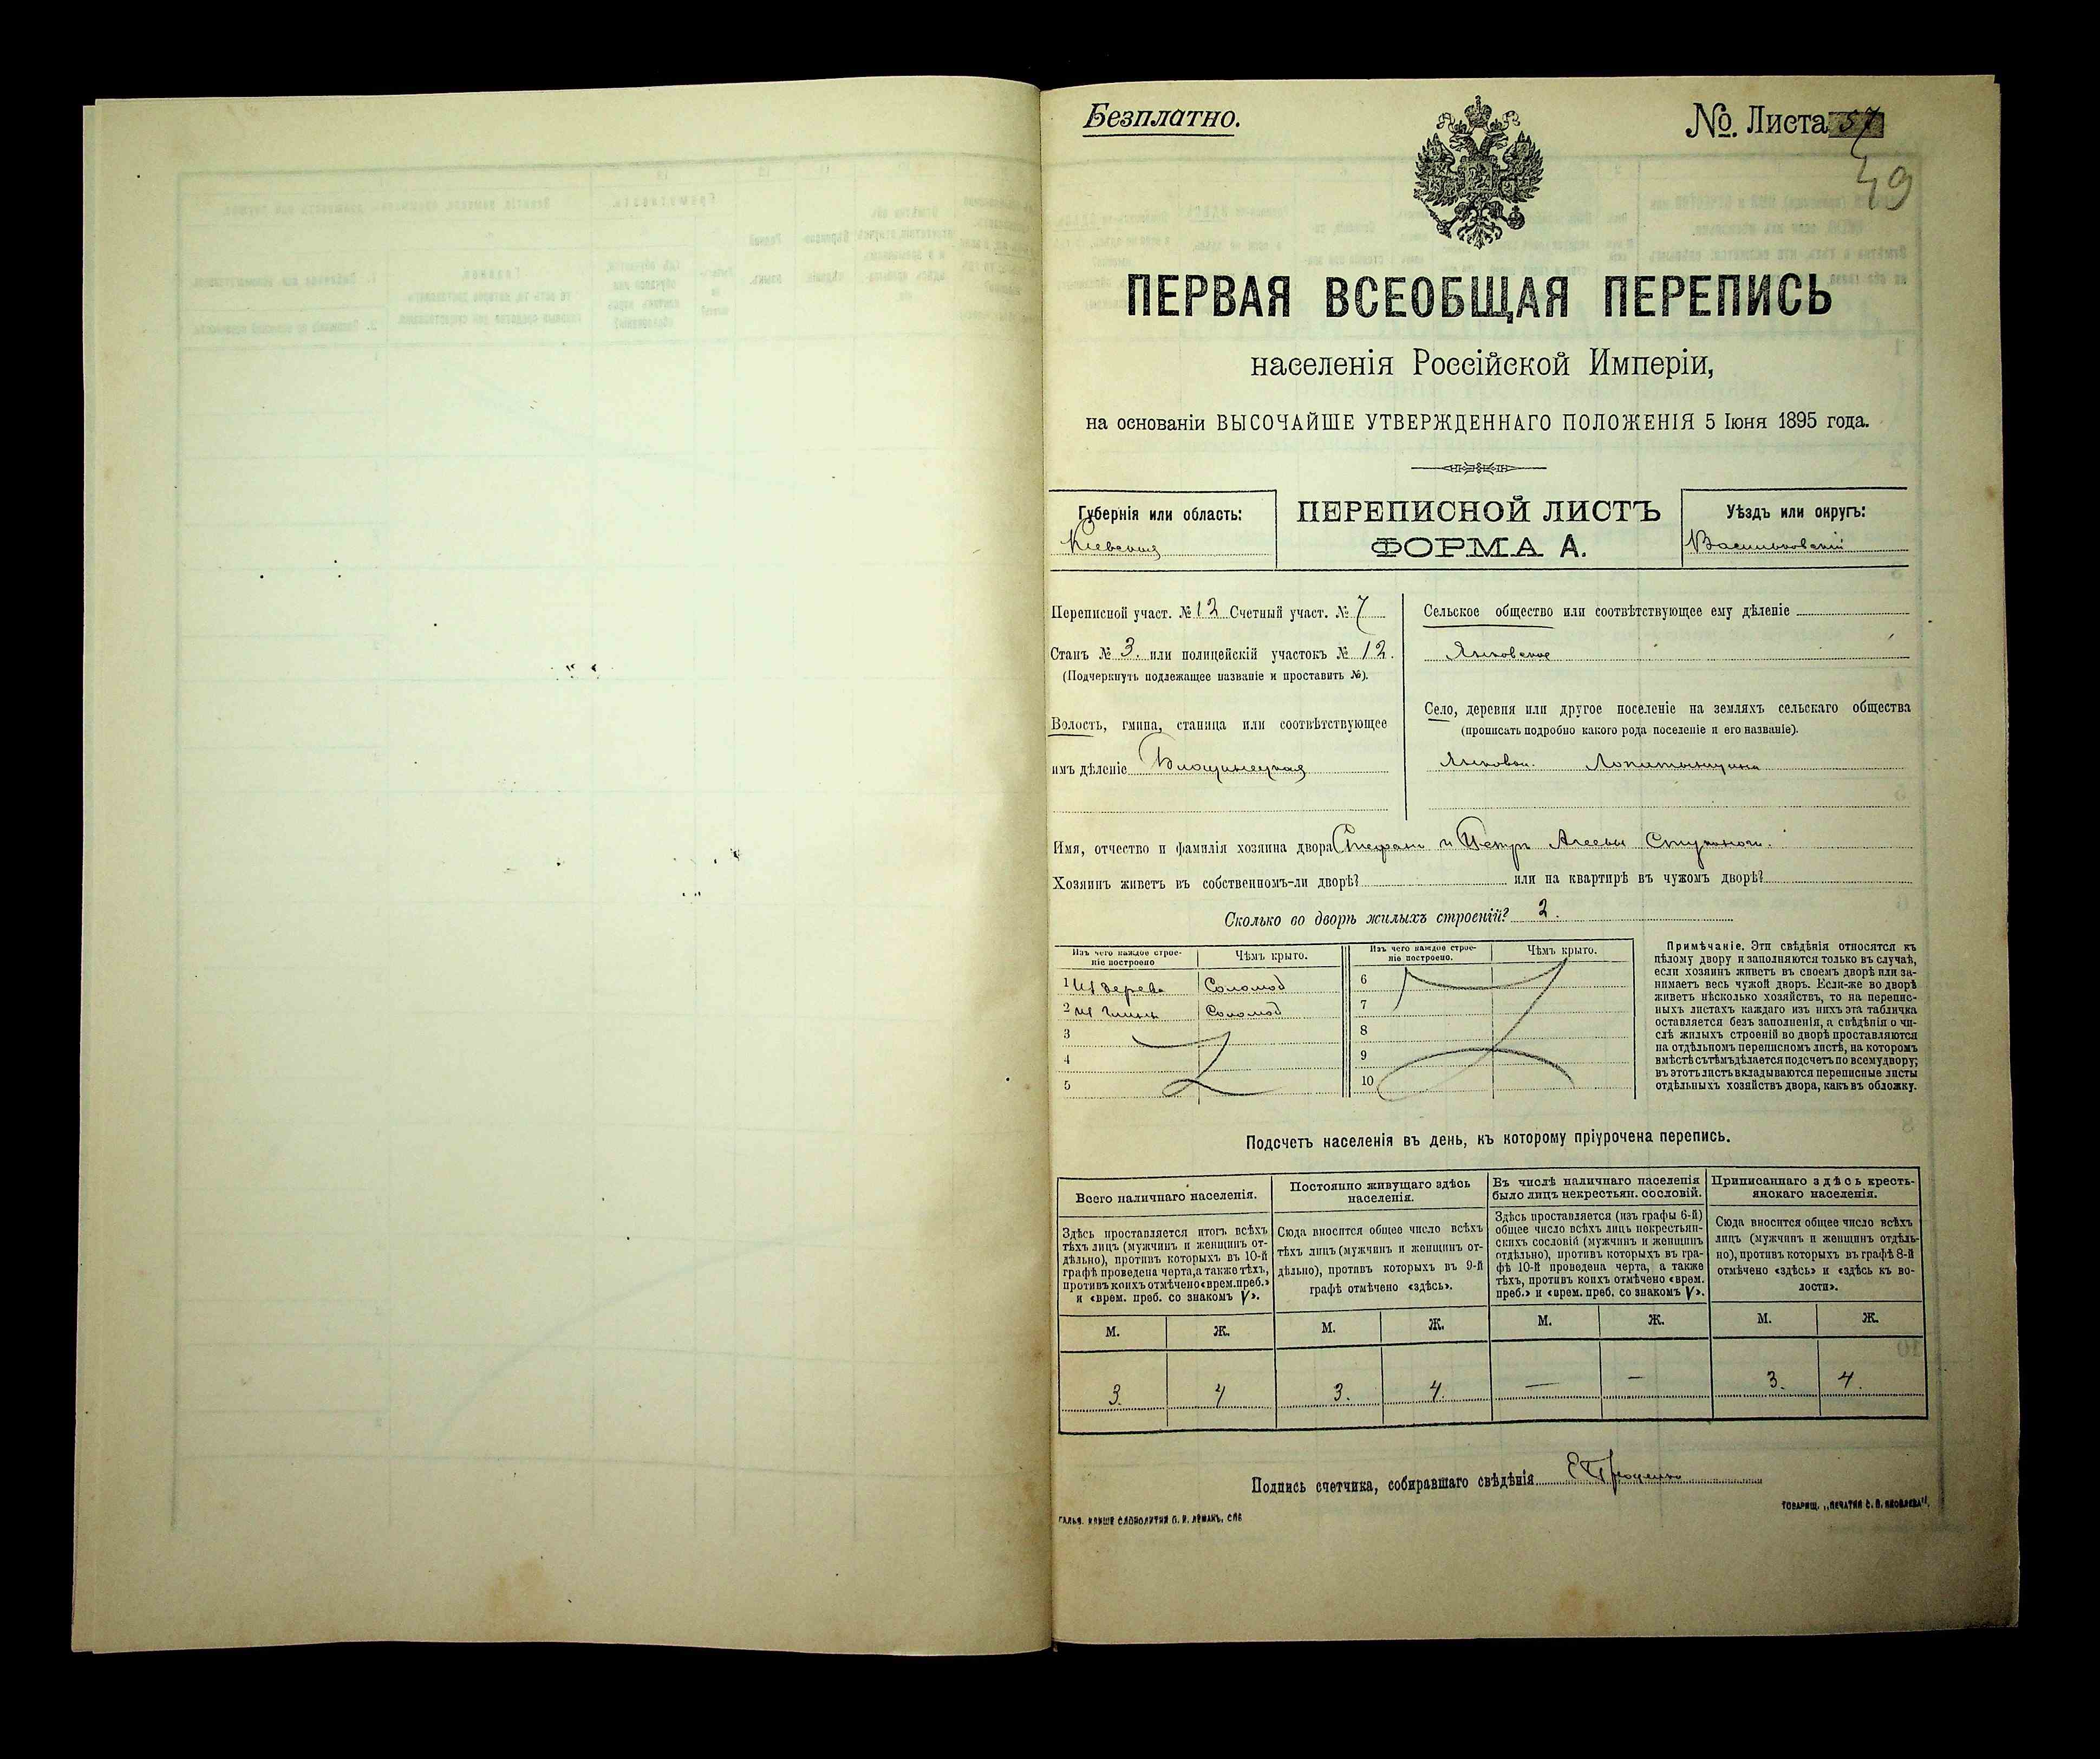 Безплатно.
№. Листа 57
49
ПЕРВАЯ ВСЕОБЩАЯ ПЕРЕПИСЬ
населенія Россійской Имперіи,
на основаніи ВЫСОЧАЙШЕ УТВЕРЖДЕННАГО ПОЛОЖЕНІЯ 5 Іюня 1895 года.
Губернія или область:
Кіевская
ПЕРЕПИСНОЙ ЛИСТЪ
ФОРМА А.
Уѣздъ или округъ:
Васильковскій
Переписной участ. № 12 Счетный участ. № 7
Станъ № 3. или полицейскій участокъ № 12.
(Подчеркнуть подлежащее названіе и проставить №).
Волость, гмина, станица или соотвѣтствующее
имъ дѣленіе
Сельское общество или соотвѣтствующее ему дѣленіе
Яновское
Село, деревня или другое поселеніе на земляхъ сельскаго общества
(прописать подробно какого рода поселеніе и его названіе).
Имя, отчество и фамилія хозяина двора Стефанъ и Петръ
Хозяинъ живетъ въ собственномъ-ли дворѣ? или на квартирѣ въ чужомъ дворѣ?
Сколько во дворѣ жилыхъ строеній? 2.
Изъ чего каждое строе-
ніе построено
Чѣмъ крыто.
1 Из дерева Соломой
2 из глины Соломой
3
4
5
Изъ чего каждое строе-
ніе построено.
Чѣмъ крыто.
6
7
8
9
10
Примѣчаніе. Эти свѣдѣнія относятся къ
цѣлому двору и заполняются только въ случаѣ,
если хозяинъ живетъ въ своемъ дворѣ или за-
нимаетъ весь чужой дворъ. Если-же во дворѣ
живетъ нѣсколько хозяйствъ, то на перепис-
ныхъ листахъ каждаго изъ нихъ эта табличка
оставляется безъ заполненія, а свѣдѣнія о чи-
слѣ жилыхъ строеній во дворѣ проставляются
на отдѣльномъ переписномъ листѣ, на которомъ
вмѣстѣ съ тѣмъ дѣлается подсчетъ по всему двору;
въ этотъ листъ вкладываются переписные листы
отдѣльныхъ хозяйствъ двора, какъ въ обложку.
Подсчетъ населенія въ день, къ которому пріурочена перепись.
Всего наличнаго населенія.
Здѣсь проставляется итогъ всѣхъ
тѣхъ лицъ (мужчинъ и женщинъ от-
дѣльно), противъ которыхъ въ 10-й
графѣ проведена черта, а также тѣхъ,
противъ коихъ отмѣчено «врем. преб.»
и «врем. преб. со знакомъ V».
Постоянно живущаго здѣсь
населенія.
Сюда вносится общее число всѣхъ
тѣхъ лицъ (мужчинъ и женщинъ от-
дѣльно), противъ которыхъ въ 9-й
графѣ отмѣчено «здѣсь».
Въ числѣ наличнаго населенія
было лицъ некрестьян. сословій.
Здѣсь проставляется (изъ графы 6-й)
общее число всѣхъ лицъ некрестьян-
скихъ сословій (мужчинъ и женщинъ
отдѣльно), противъ которыхъ въ гра-
фѣ 10-й проведена черта, а также
тѣхъ, противъ коихъ отмѣчено «врем.
преб.» и «врем. преб. со знакомъ V».
Приписаннаго здѣсь кресть-
янскаго населенія.
Сюда вносится общее число всѣхъ
лицъ (мужчинъ и женщинъ отдѣль-
но), противъ которыхъ въ графѣ 8-й
отмѣчено «здѣсь» и «здѣсь къ во-
лости».
М. Ж. М. Ж. М. Ж. М. Ж.
3. 4 3. 4. — — 3. 4.
Подпись счетчика, собиравшаго свѣдѣнія
ТОВАРИЩ. „ПЕЧАТНЯ С. П. ЯКОВЛЕВА".